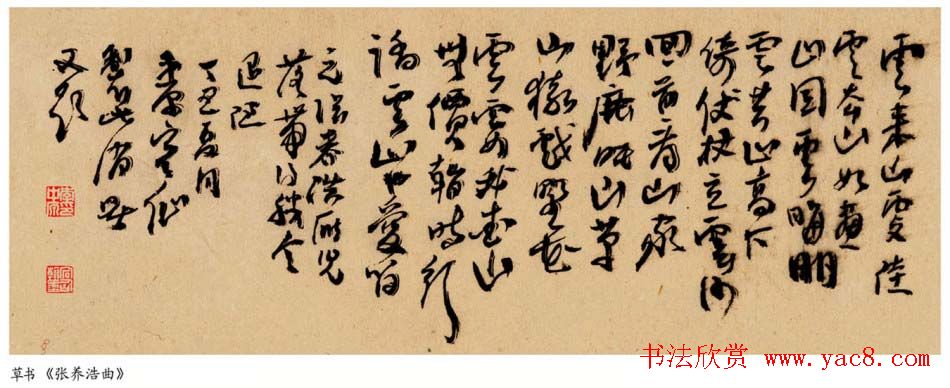 雲来山更佳
雲去山如畫
山因雲晦明
雲共山高下
倚仗杖立雲沙
回首看山家
野鹿眠山草
山猿戲野花
雲霞我愛山
無價看時行
踏雲山也愛咱
元張養浩雁兒
落帶得勝令
退隐
丁丑夏月
草书《张养浩曲》
书法欣赏 www.yac8.com